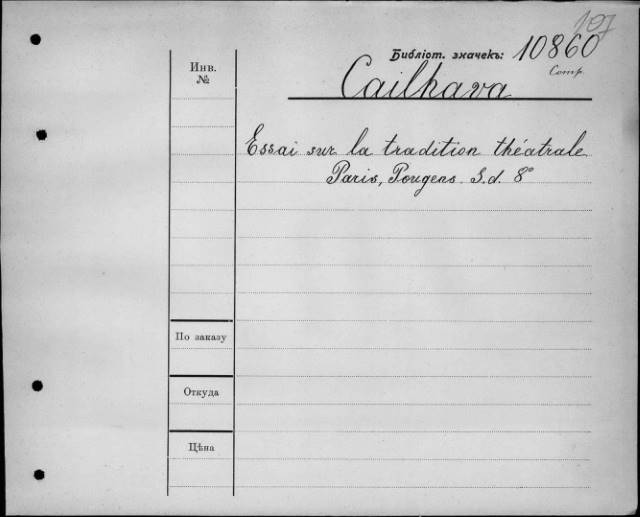 107
Библіот. значекъ: 10860
Comp.
Cailhava
Инв.
№
Essai sur la tradition théatrale
Paris, Pougens. S.d. 8°
По заказу
Откуда
Цѣна